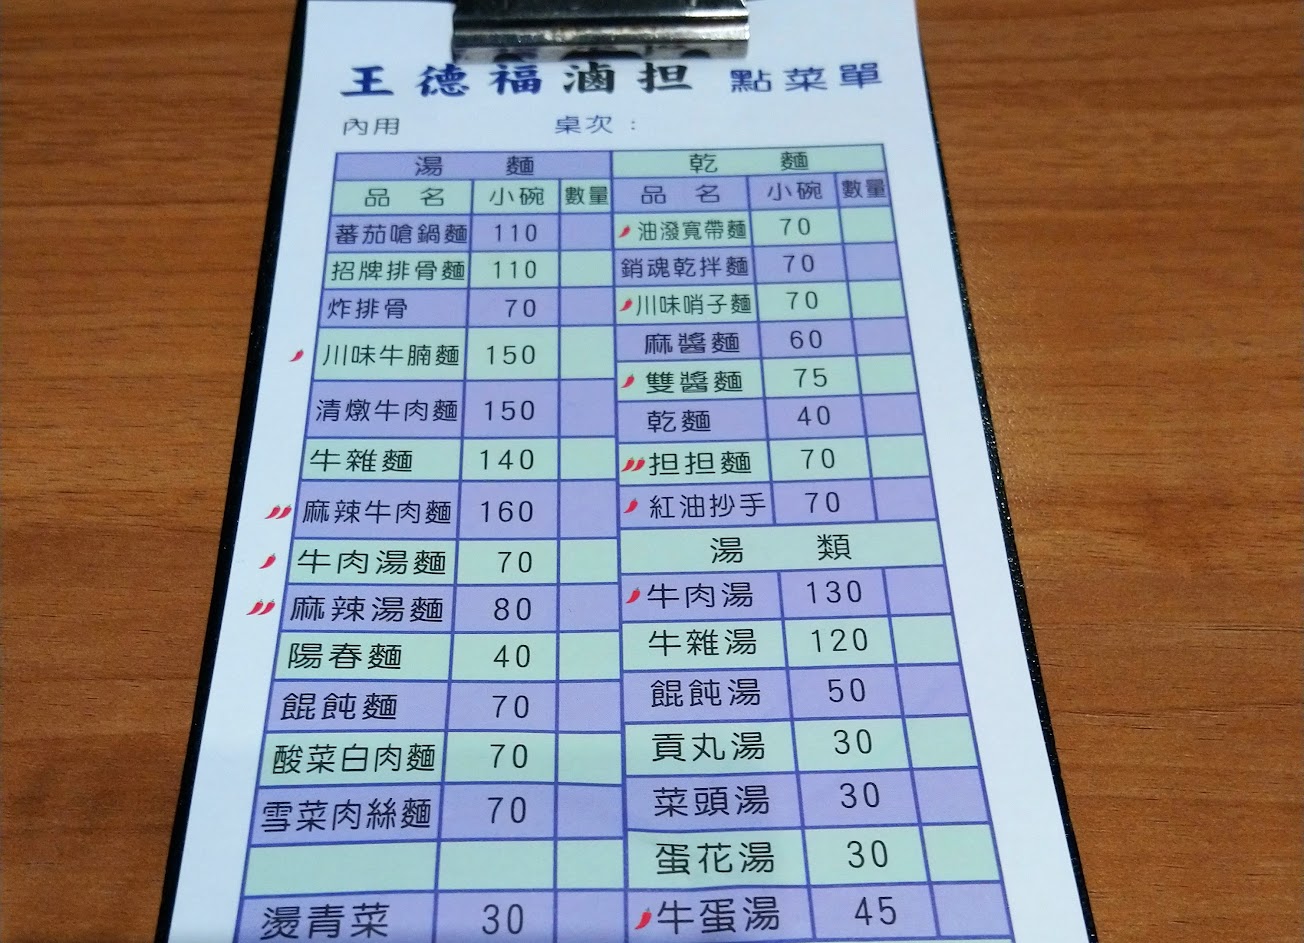 王德福滷担 點菜單
內用 桌次：
湯 麵
品 名 小碗 數量
蕃茄嗆鍋麵 110
招牌排骨麵 110
炸排骨 70
川味牛腩麵 150
清燉牛肉麵 150
牛雜麵 140
麻辣牛肉麵 160
牛肉湯麵 70
麻辣湯麵 80
陽春麵 40
餛飩麵 70
酸菜白肉麵 70
雪菜肉絲麵 70
燙青菜 30
乾 麵
品 名 小碗 數量
油潑寬帶麵 70
銷魂乾拌麵 70
川味哨子麵 70
麻醬麵 60
雙醬麵 75
乾麵 40
担担麵 70
紅油抄手 70
湯 類
牛肉湯 130
牛雜湯 120
餛飩湯 50
貢丸湯 30
菜頭湯 30
蛋花湯 30
牛蛋湯 45